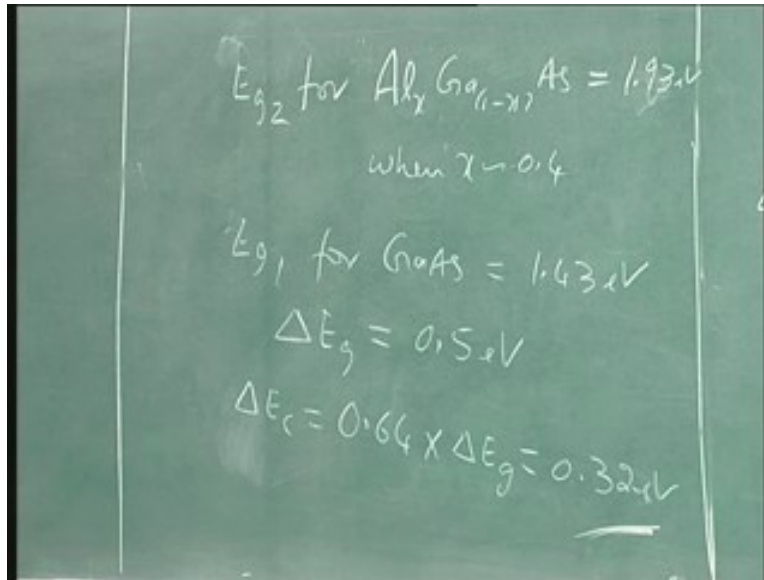 Eg2 for AlxGa(1-x)As = 1.93eV
when x ~ 0.4
Eg1 for GaAs = 1.43eV
ΔEg = 0.5eV
ΔEc = 0.64 x ΔEg = 0.32eV